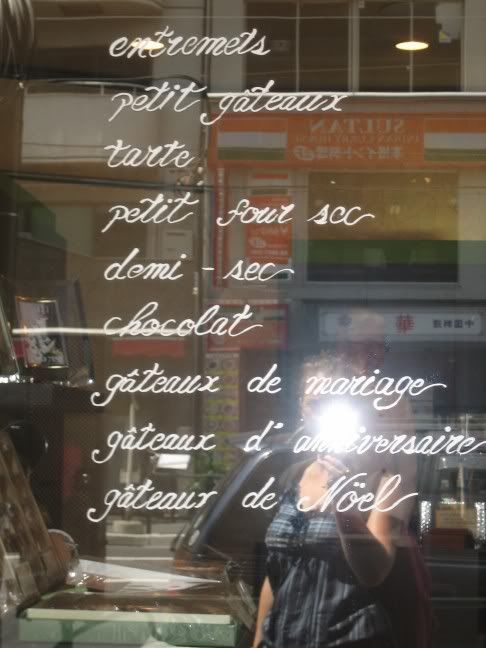 entremets
petit gâteaux
tarte
petit four sec
demi - sec
chocolat
gâteaux de mariage
gâteaux d'anniversaire
gâteaux de Nöel
SULTAN